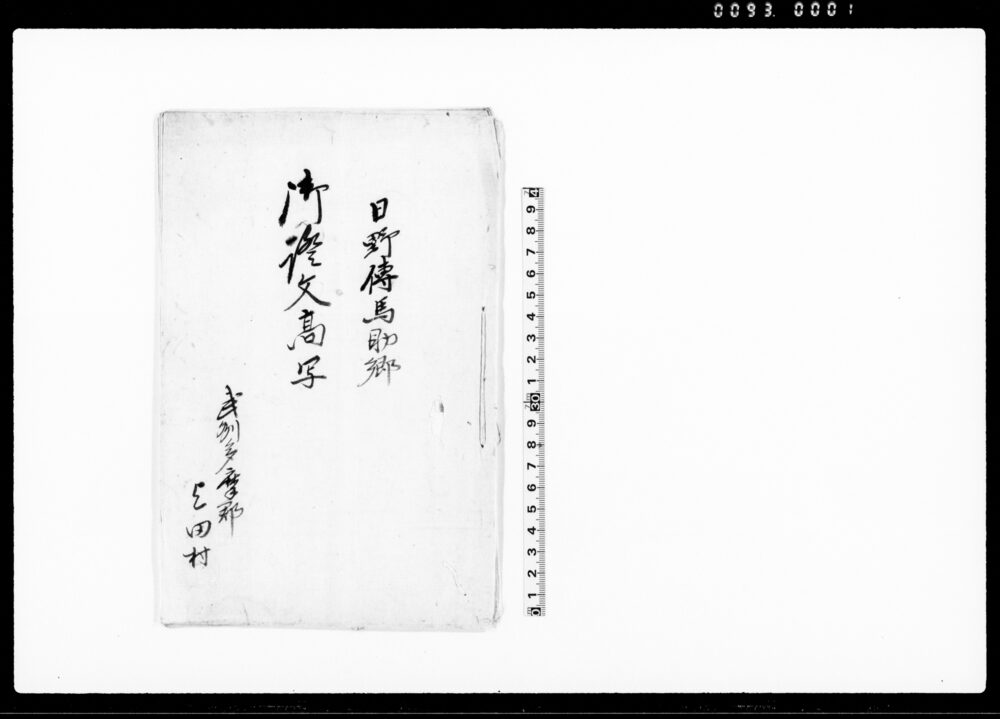 0093 0001
日野傳馬助郷
御證文高写
武州多摩郡
上田村
4
9
8
7
6
5
4
3
2
1
30
9
8
7
6
5
4
3
2
1
0